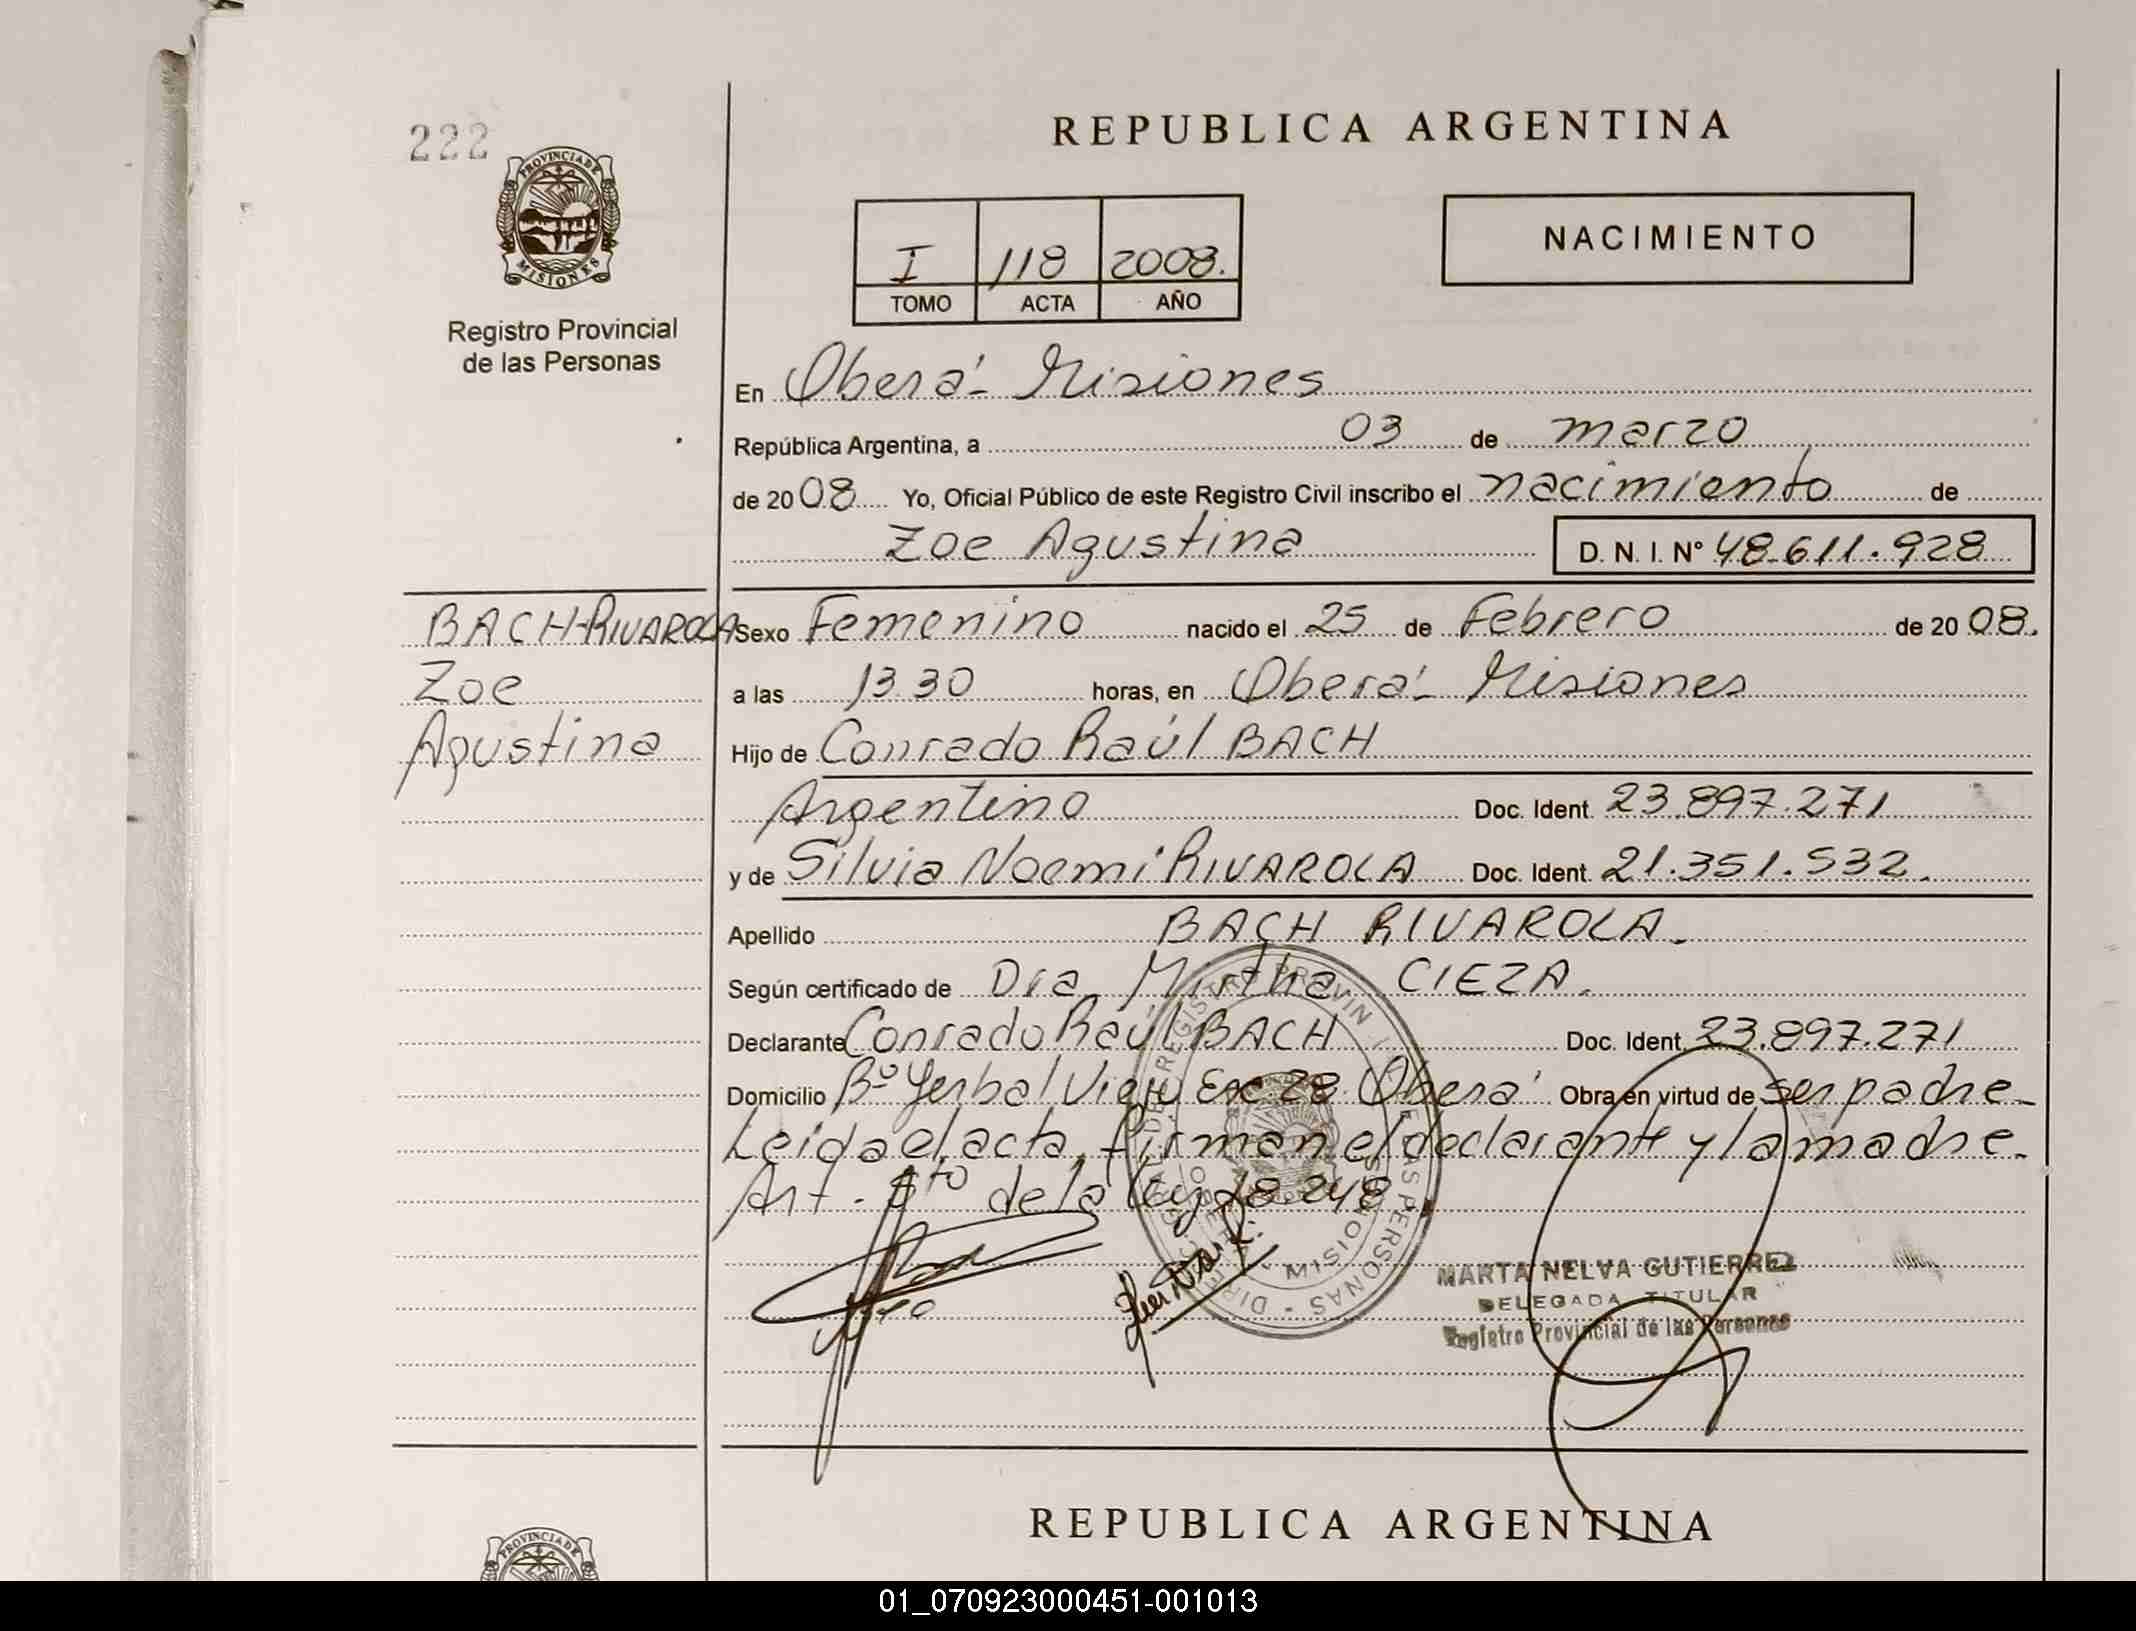 222
PROVINCIA DE
MISIONES
Registro Provincial
de las Personas
REPUBLICA ARGENTINA
I 118 2008.
TOMO ACTA AÑO
NACIMIENTO
En Oberá - Misiones
República Argentina, a 03 de marzo
de 2008 Yo, Oficial Público de este Registro Civil inscribo el nacimiento de
Zoe Agustina D. N. I. Nº 48.611.928
BACH-RIVAROLA
Zoe
Agustina
Sexo Femenino nacido el 25 de Febrero de 2008.
a las 13.30 horas, en Oberá - Misiones
Hijo de Conrado Raúl BACH
Argentino Doc. Ident. 23.897.271
y de Silvia Noemí RIVAROLA Doc. Ident. 21.351.532.
Apellido BACH RIVAROLA.
Según certificado de Dra Mirtha CIEZA.
Declarante Conrado Raúl BACH Doc. Ident. 23.897.271
Domicilio Bº Yerbal Viejo Esc 28 Oberá Obra en virtud de ser padre-
Leida el acta, firman el declarante y la madre-
Art. 5to de la ley 18.248
MARTA NELVA GUTIERREZ
DELEGADA TITULAR
Registro Provincial de las Personas
REPUBLICA ARGENTINA
PROVINCIA DE
01_070923000451-001013